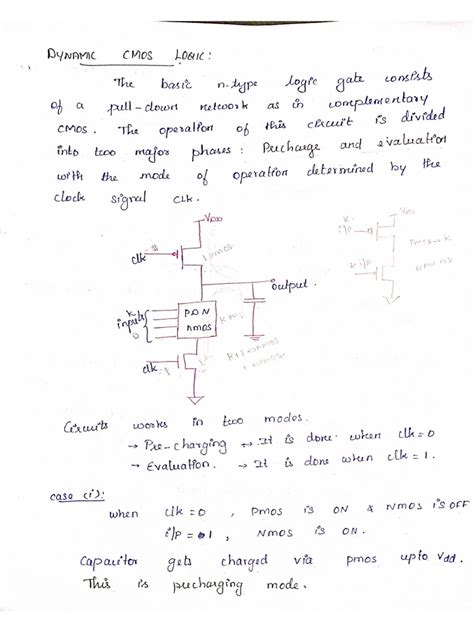 DYNAMIC CMOS LOGIC:
The basic n-type logic gate consists
of a pull-down network as in complementary
CMOS. The operation of this circuit is divided
into two major phases: Precharge and evaluation
with the mode of operation determined by the
clock signal CLK.
VDD
clk
1 pmos
output
K inputs
P.D.N
nmos
K nmos
clk
K+1 → nmos
1 → pmos
VDD
K i/p
Pmos → K
K i/p
Nmos
Circuits works in two modes.
→ Pre-charging ↔ It is done when clk=0
→ Evaluation. → It is done when clk=1.
case (i):
when clk=0, Pmos is ON & Nmos is OFF
i/p = 1, Nmos is ON.
Capacitor gets charged via pmos upto Vdd.
This is precharging mode.